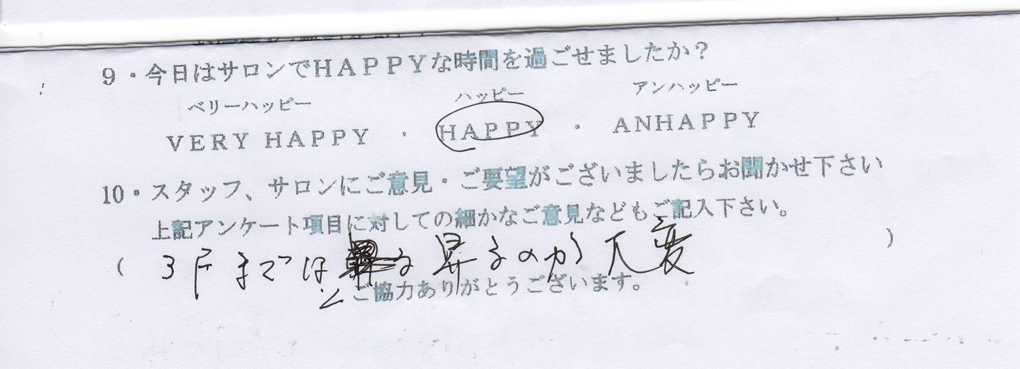 9・今日はサロンでHAPPYな時間を過ごせましたか？
ベリーハッピー ハッピー アンハッピー
VERY HAPPY ・ HAPPY ・ ANHAPPY
10・スタッフ、サロンにご意見・ご要望がございましたらお聞かせ下さい
上記アンケート項目に対しての細かなご意見などもご記入下さい。
( 3Fまでは 昇るのが大変 )
ご協力ありがとうございます。